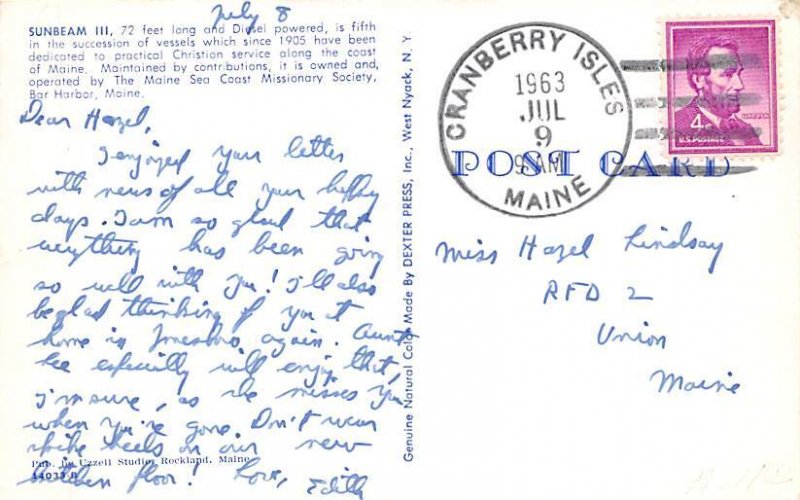 July 8
SUNBEAM III, 72 feet long and Diesel powered, is fifth
in the succession of vessels which since 1905 have been
dedicated to practical Christian service along the coast
of Maine. Maintained by contributions, it is owned and
operated by The Maine Sea Coast Missionary Society,
Bar Harbor, Maine.
Dear Hazel,
I enjoyed your letter
with news of all your
days. I am so glad that
everything has been going
so well with you! I'll also
be glad thinking of you at
home in again. Aunt
especially will enjoy that,
I'm sure, as she misses you
when you're gone. Don't wear
spike heels on our new
kitchen floor! Love, Edith
Pub. by Uzzell Studio, Rockland, Maine
14033 B
Genuine Natural Color Made By DEXTER PRESS, Inc., West Nyack, N. Y.
CRANBERRY ISLES
1963
JUL
9
9 AM
MAINE
4¢
LINCOLN
U.S. POSTAGE
POST CARD
Miss Hazel Lindsay
RFD 2
Union
Maine